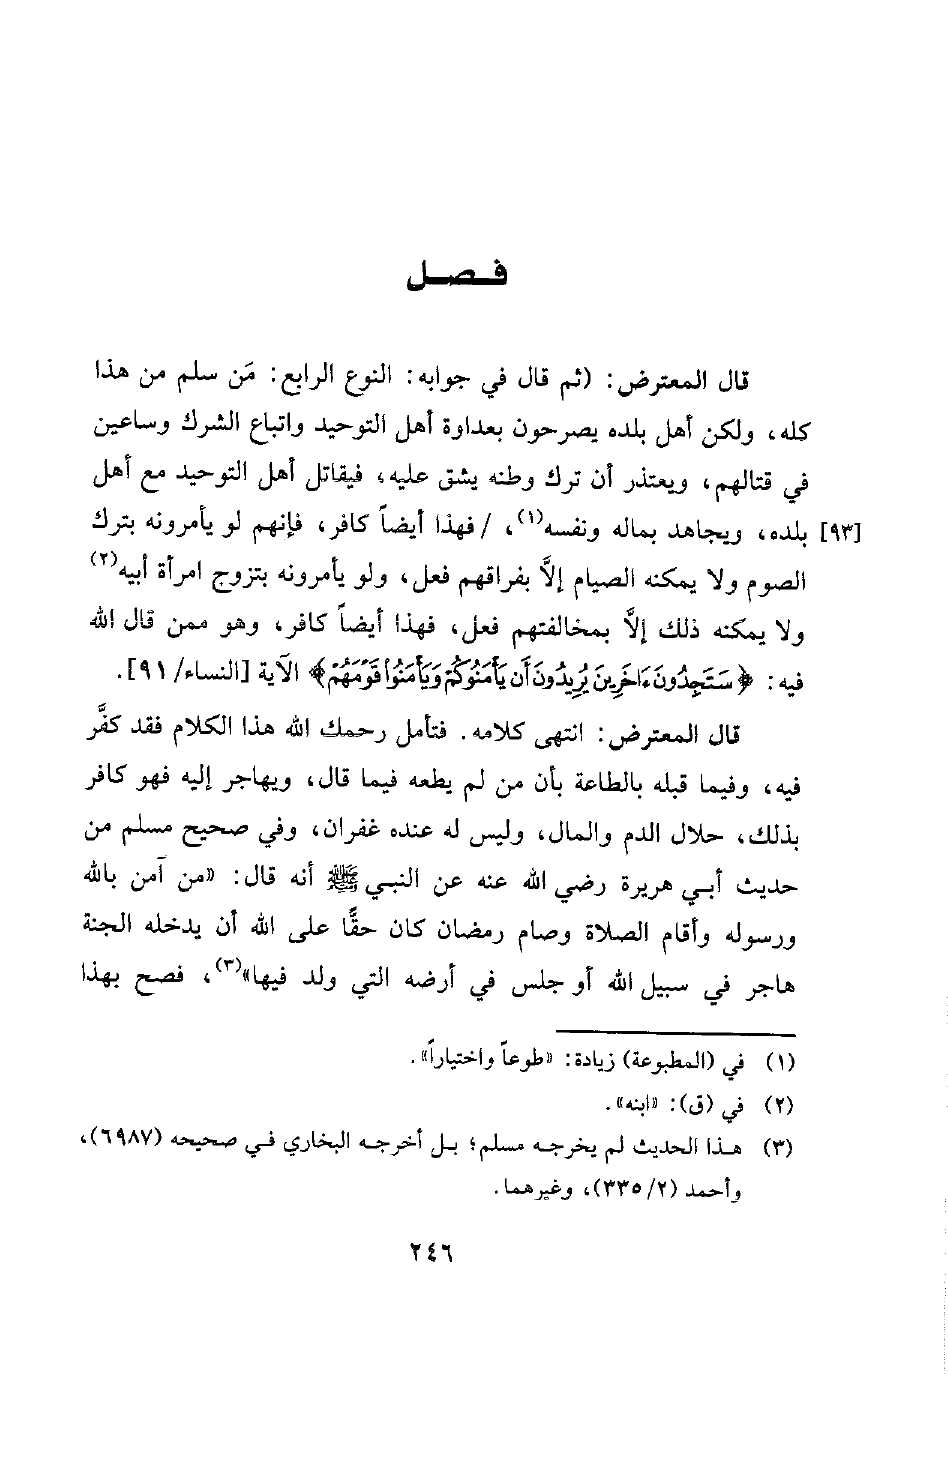 فـصـل
قال المعترض: (ثم قال في جوابه: النوع الرابع: مَن سلم من هذا
كله، ولكن أهل بلده يصرحون بعداوة أهل التوحيد واتباع الشرك وساعين
في قتالهم، ويعتذر أن ترك وطنه يشق عليه، فيقاتل أهل التوحيد مع أهل
[٩٣] بلده، ويجاهد بماله ونفسه(١)، / فهذا أيضاً كافر، فإنهم لو يأمرونه بترك
الصوم ولا يمكنه الصيام إلاَّ بفراقهم فعل، ولو يأمرونه بتزوج امرأة أبيه(٢)
ولا يمكنه ذلك إلاَّ بمخالفتهم فعل، فهذا أيضاً كافر، وهو ممن قال الله
فيه: ﴿سَتَجِدُونَ ءَاخَرِينَ يُرِيدُونَ أَن يَأْمَنُوكُمْ وَيَأْمَنُوا۟ قَوْمَهُمْ﴾ الآية [النساء/ ٩١].
قال المعترض: انتهى كلامه. فتأمل رحمك الله هذا الكلام فقد كفَّر
فيه، وفيما قبله بالطاعة بأن من لم يطعه فيما قال، ويهاجر إليه فهو كافر
بذلك، حلال الدم والمال، وليس له عنده غفران، وفي صحيح مسلم من
حديث أبي هريرة رضي الله عنه عن النبي ﷺ أنه قال: «من آمن بالله
ورسوله وأقام الصلاة وصام رمضان كان حقًّا على الله أن يدخله الجنة
هاجر في سبيل الله أو جلس في أرضه التي ولد فيها»(٣)، فصح بهذا
(١) في (المطبوعة) زيادة: «طوعاً واختياراً».
(٢) في (ق): «ابنه».
(٣) هذا الحديث لم يخرجه مسلم؛ بل أخرجه البخاري في صحيحه (٦٩٨٧)،
وأحمد (٢/ ٣٣٥)، وغيرهما.
٢٤٦